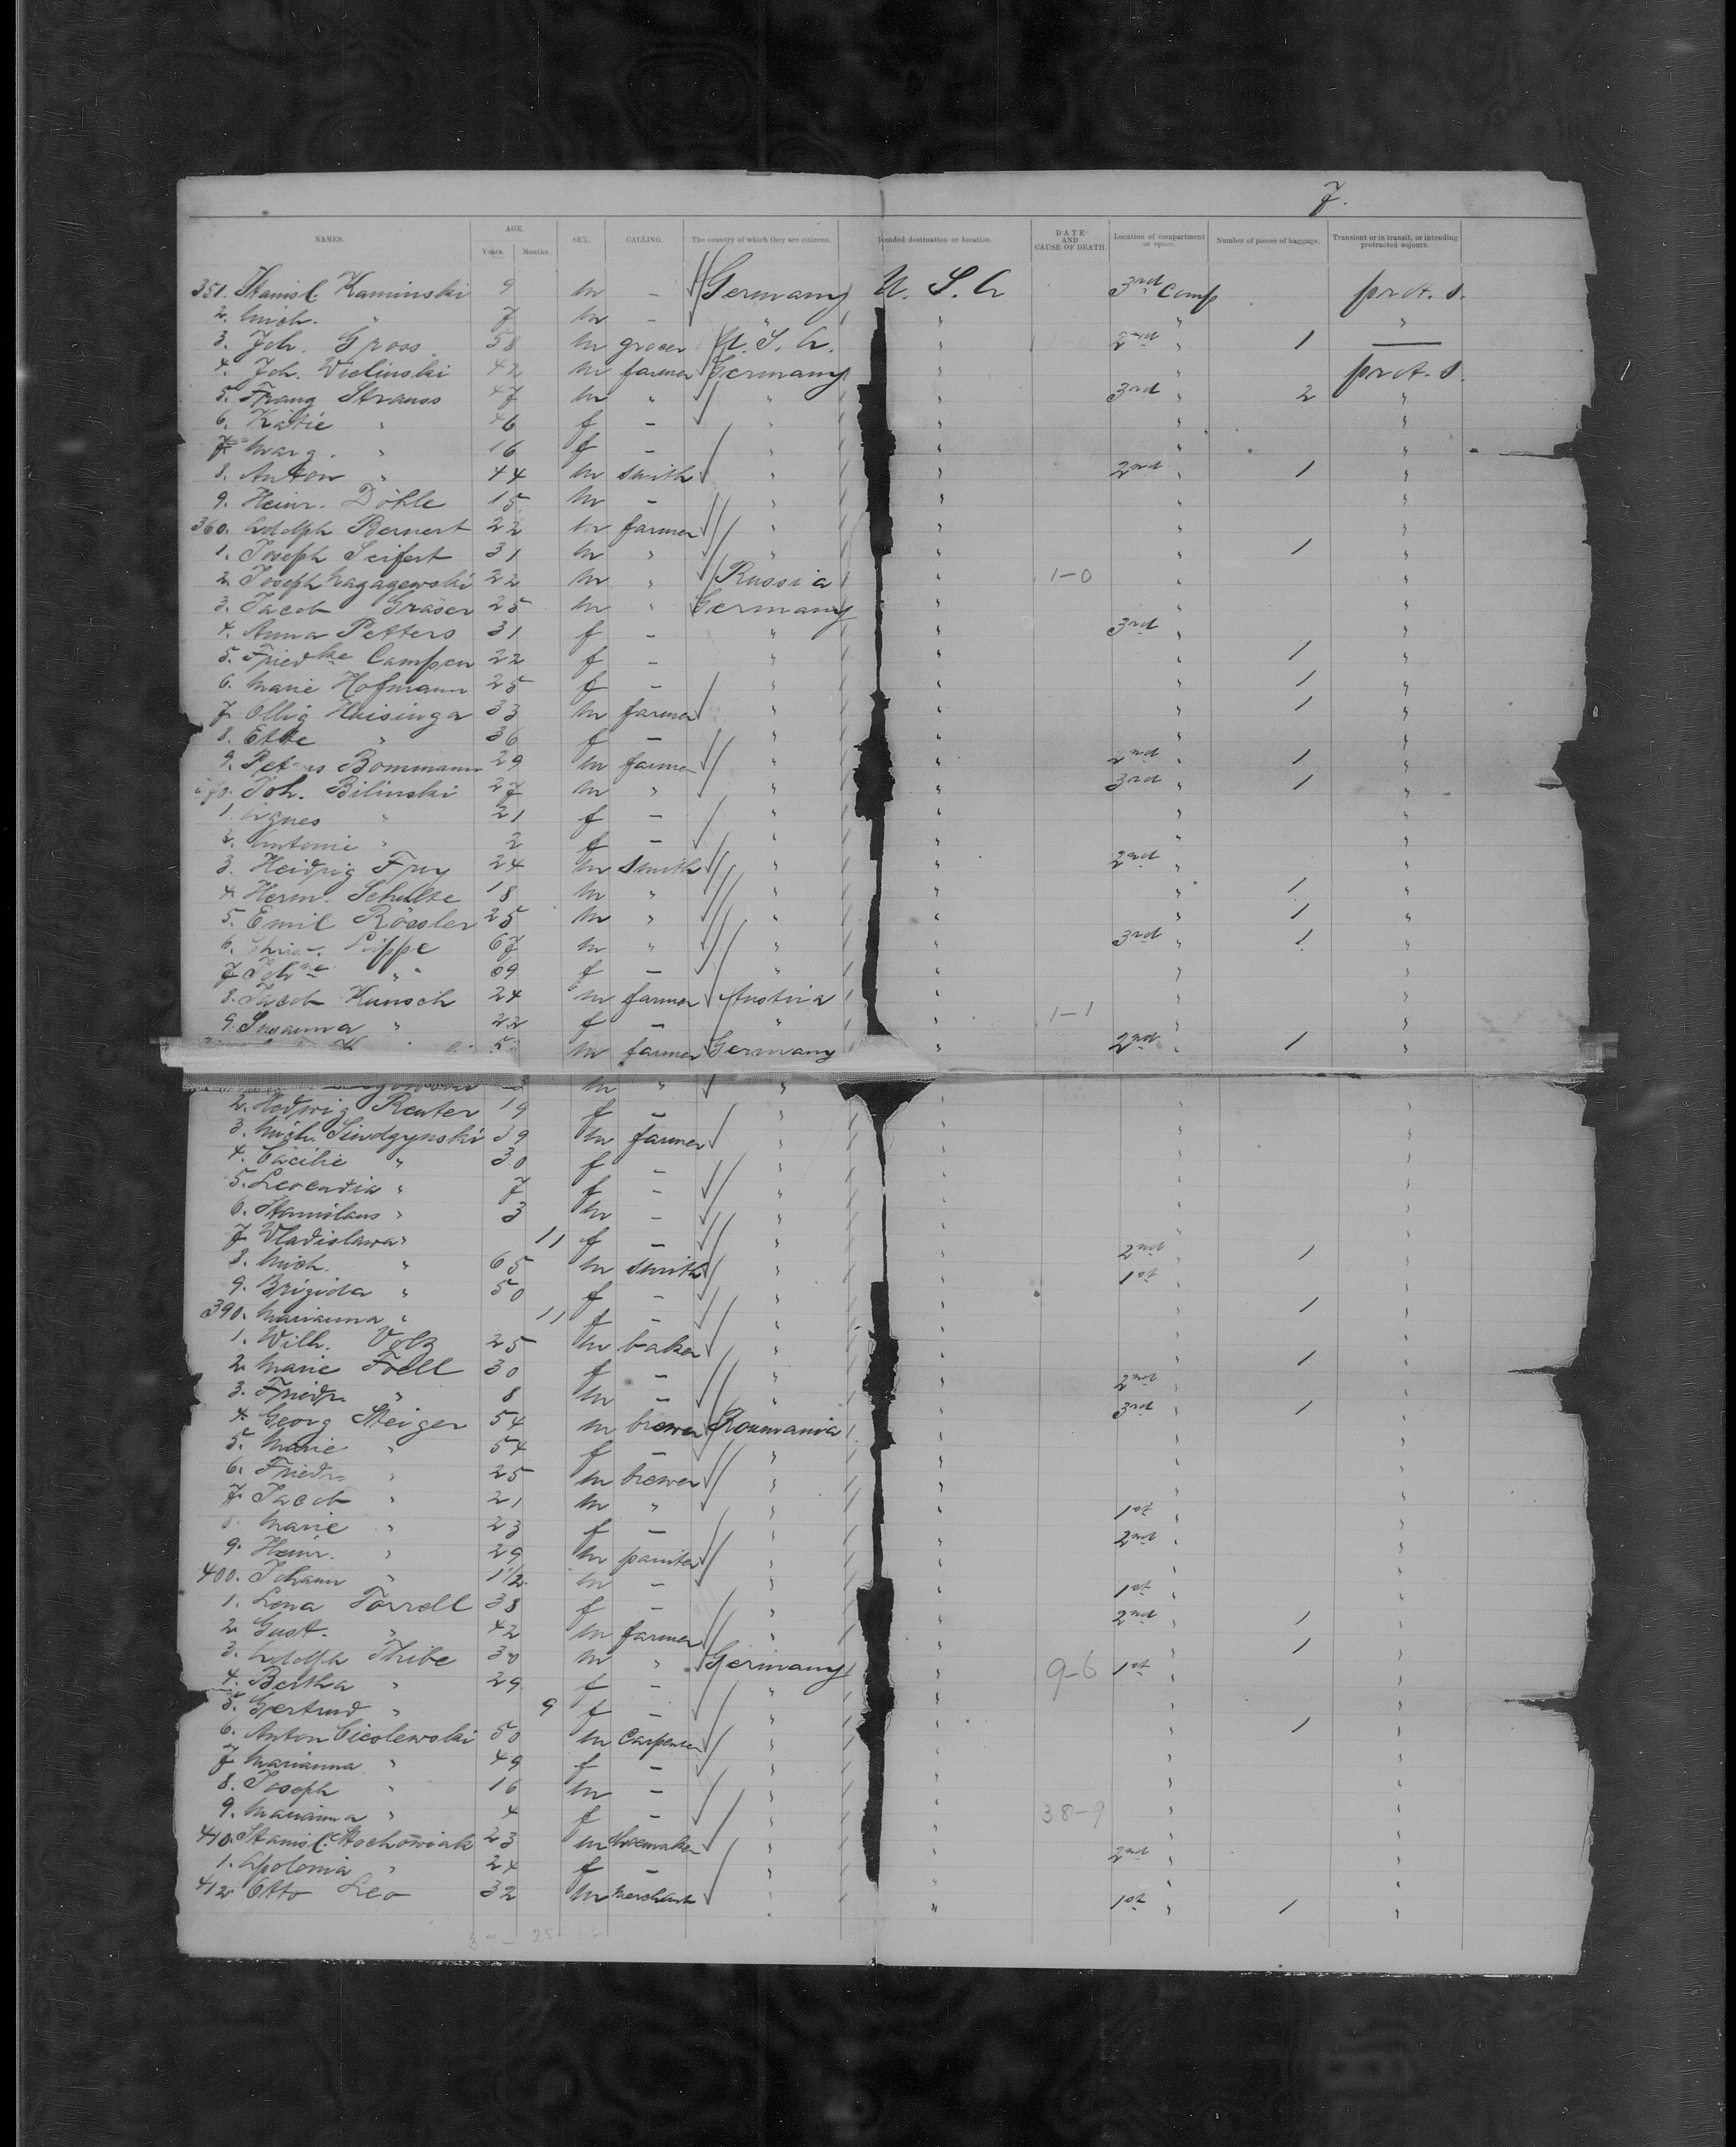 7.
NAMES. AGE. Years. Months. SEX. CALLING. The country of which they are citizens. Intended destination or location. DATE AND CAUSE OF DEATH. Location of compartment or space. Number of pieces of baggage. Transient or in transit, or intending protracted sojourn.
351. Stanisl. Kaminski 9 m - Germany U. S. A 3rd Comp prot. s.
2. Mich. " 7 m - " " " "
3. Joh. Gross 58 m grocer U. S. A. " 2nd " 1 —
4. Joh. Wielinski 42 m farmer Germany " " prot. s.
5. Franz Strauss 47 m " " " 3rd " 2 "
6. Kätie " 46 f - " " " "
7. Marg. " 16 f - " " " "
8. Anton " 44 m smith " " 2nd " 1 "
9. Heinr. Döhle 15 m - " " " "
360. Adolph Bernert 22 m farmer " " " "
1. Joseph Seifert 31 m " " " " 1 "
2. Joseph 22 m " Russia " 1-0 " "
3. Jacob Gräser 25 m " Germany " " "
4. Anna Petters 31 f - " " 3rd " "
5. Friedke Campen 22 f - " " " 1 "
6. Marie Hofmann 25 f - " " " 1 "
7. Huisinga 33 m farmer " " " 1 "
8. Etke " 36 f - " " " "
9. Bommann 29 m farmer " " 2nd " 1 "
Joh. Bilinski 27 m " " " 3rd " 1 "
1. Agnes " 21 f - " " " "
2. Antonie " 2 f - " " " "
3. Frey 24 m smith " " 2nd " "
4. Herm. Schulte 18 m " " " " 1 "
5. Emil Rössler 25 m " " " " 1 "
6. Lippe 67 m " " " 3rd " 1 "
7. Johne " 69 f - " " " "
8. Jacob Kunsch 24 m farmer Austria " " "
9. Susanna " 22 f - " " 1-1 " "
m farmer Germany " 2nd " 1 "
m " " " " "
2. Hedwig Reuter 19 f - " " " "
3. Mich. 39 m farmer " " " "
4. Cäcilie " 30 f - " " " "
5. " 7 f - " " " "
6. Stanislaus " 3 m - " " " "
7. Vladislawa " 11 f - " " " "
8. Mich. " 65 m smith " " 2nd " 1 "
9. Brigida " 50 f - " " 1st " "
390. Marianna " 11 f - " " " 1 "
1. Wilh. Volz 25 m baker " " " "
2. Marie Frell 30 f - " " " 1 "
3. Friedr. " 8 m - " " 2nd " "
4. Georg Steiger 54 m brewer Roumania " 3rd " 1 "
5. Marie " 54 f - " " " "
6. Friedr. " 25 m brewer " " " "
7. Jacob " 21 m " " " " "
Marie " 23 f - " " 1st " "
9. Heinr. " 29 m painter " " 2nd " "
400. Johann " 1 1/2 m - " " " "
1. Lena Forrell 38 f - " " 1st " "
2. Gust. " 42 m farmer " " 2nd " 1 "
3. Adolph Thibe 30 m " Germany " " 1 "
4. Bertha " 29 f - " " 9-6 1st " "
5. Gertrud " 9 f - " " " "
6. Anton Cicolewski 50 m Carpenter " " " 1 "
7. Marianna " 49 f - " " " "
8. Joseph " 16 m - " " " "
9. Marianna " 4 f - " " 38-9 " "
410. Stanisl. Stochowiak 23 m shoemaker " " " "
1. Apolonia " 24 f - " " 2nd " "
412. Otto Leo 32 m merchant " " 1st " 1 "